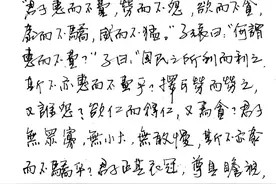 君子惠而不費,勞而不怨,欲而不貪,
泰而不驕,威而不猛。」子張曰:「何謂
惠而不費?」子曰:「因民之所利而利之,
斯不亦惠而不費乎?擇可勞而勞之,
又誰怨?欲仁而得仁,又焉貪?君子
無眾寡,無小大,無敢慢,斯不亦泰
而不驕乎?君子正其衣冠,尊其瞻視,